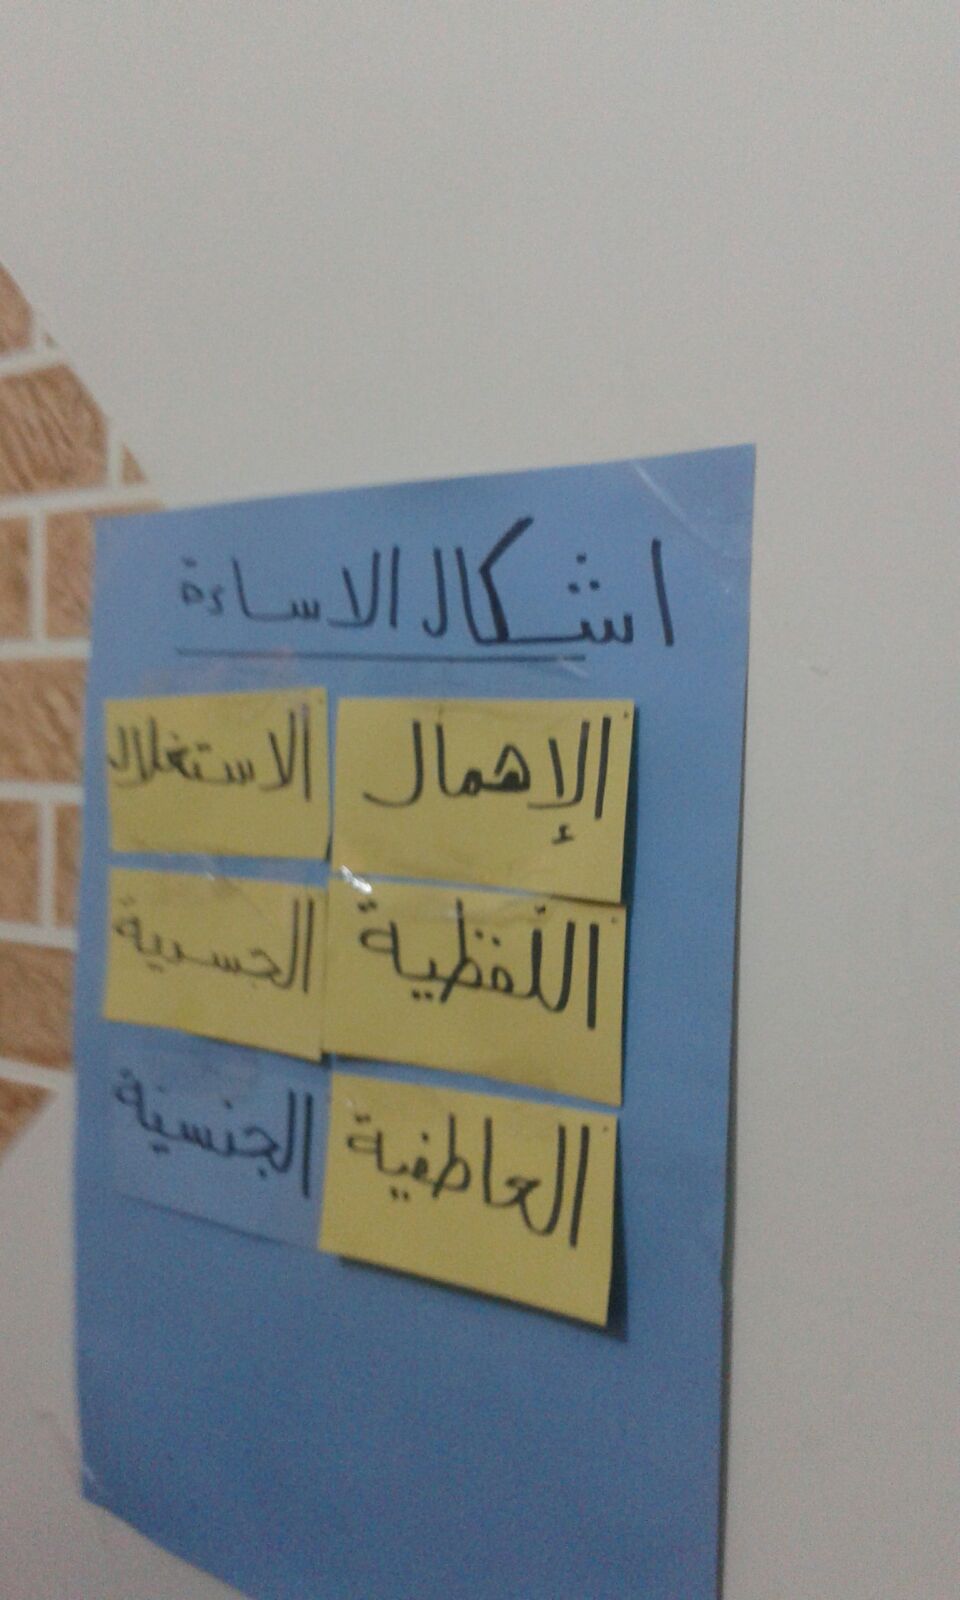 اشكال الاساءة
الإهمال
الاستغلال
اللّفظية
الجسدية
العاطفية
الجنسية